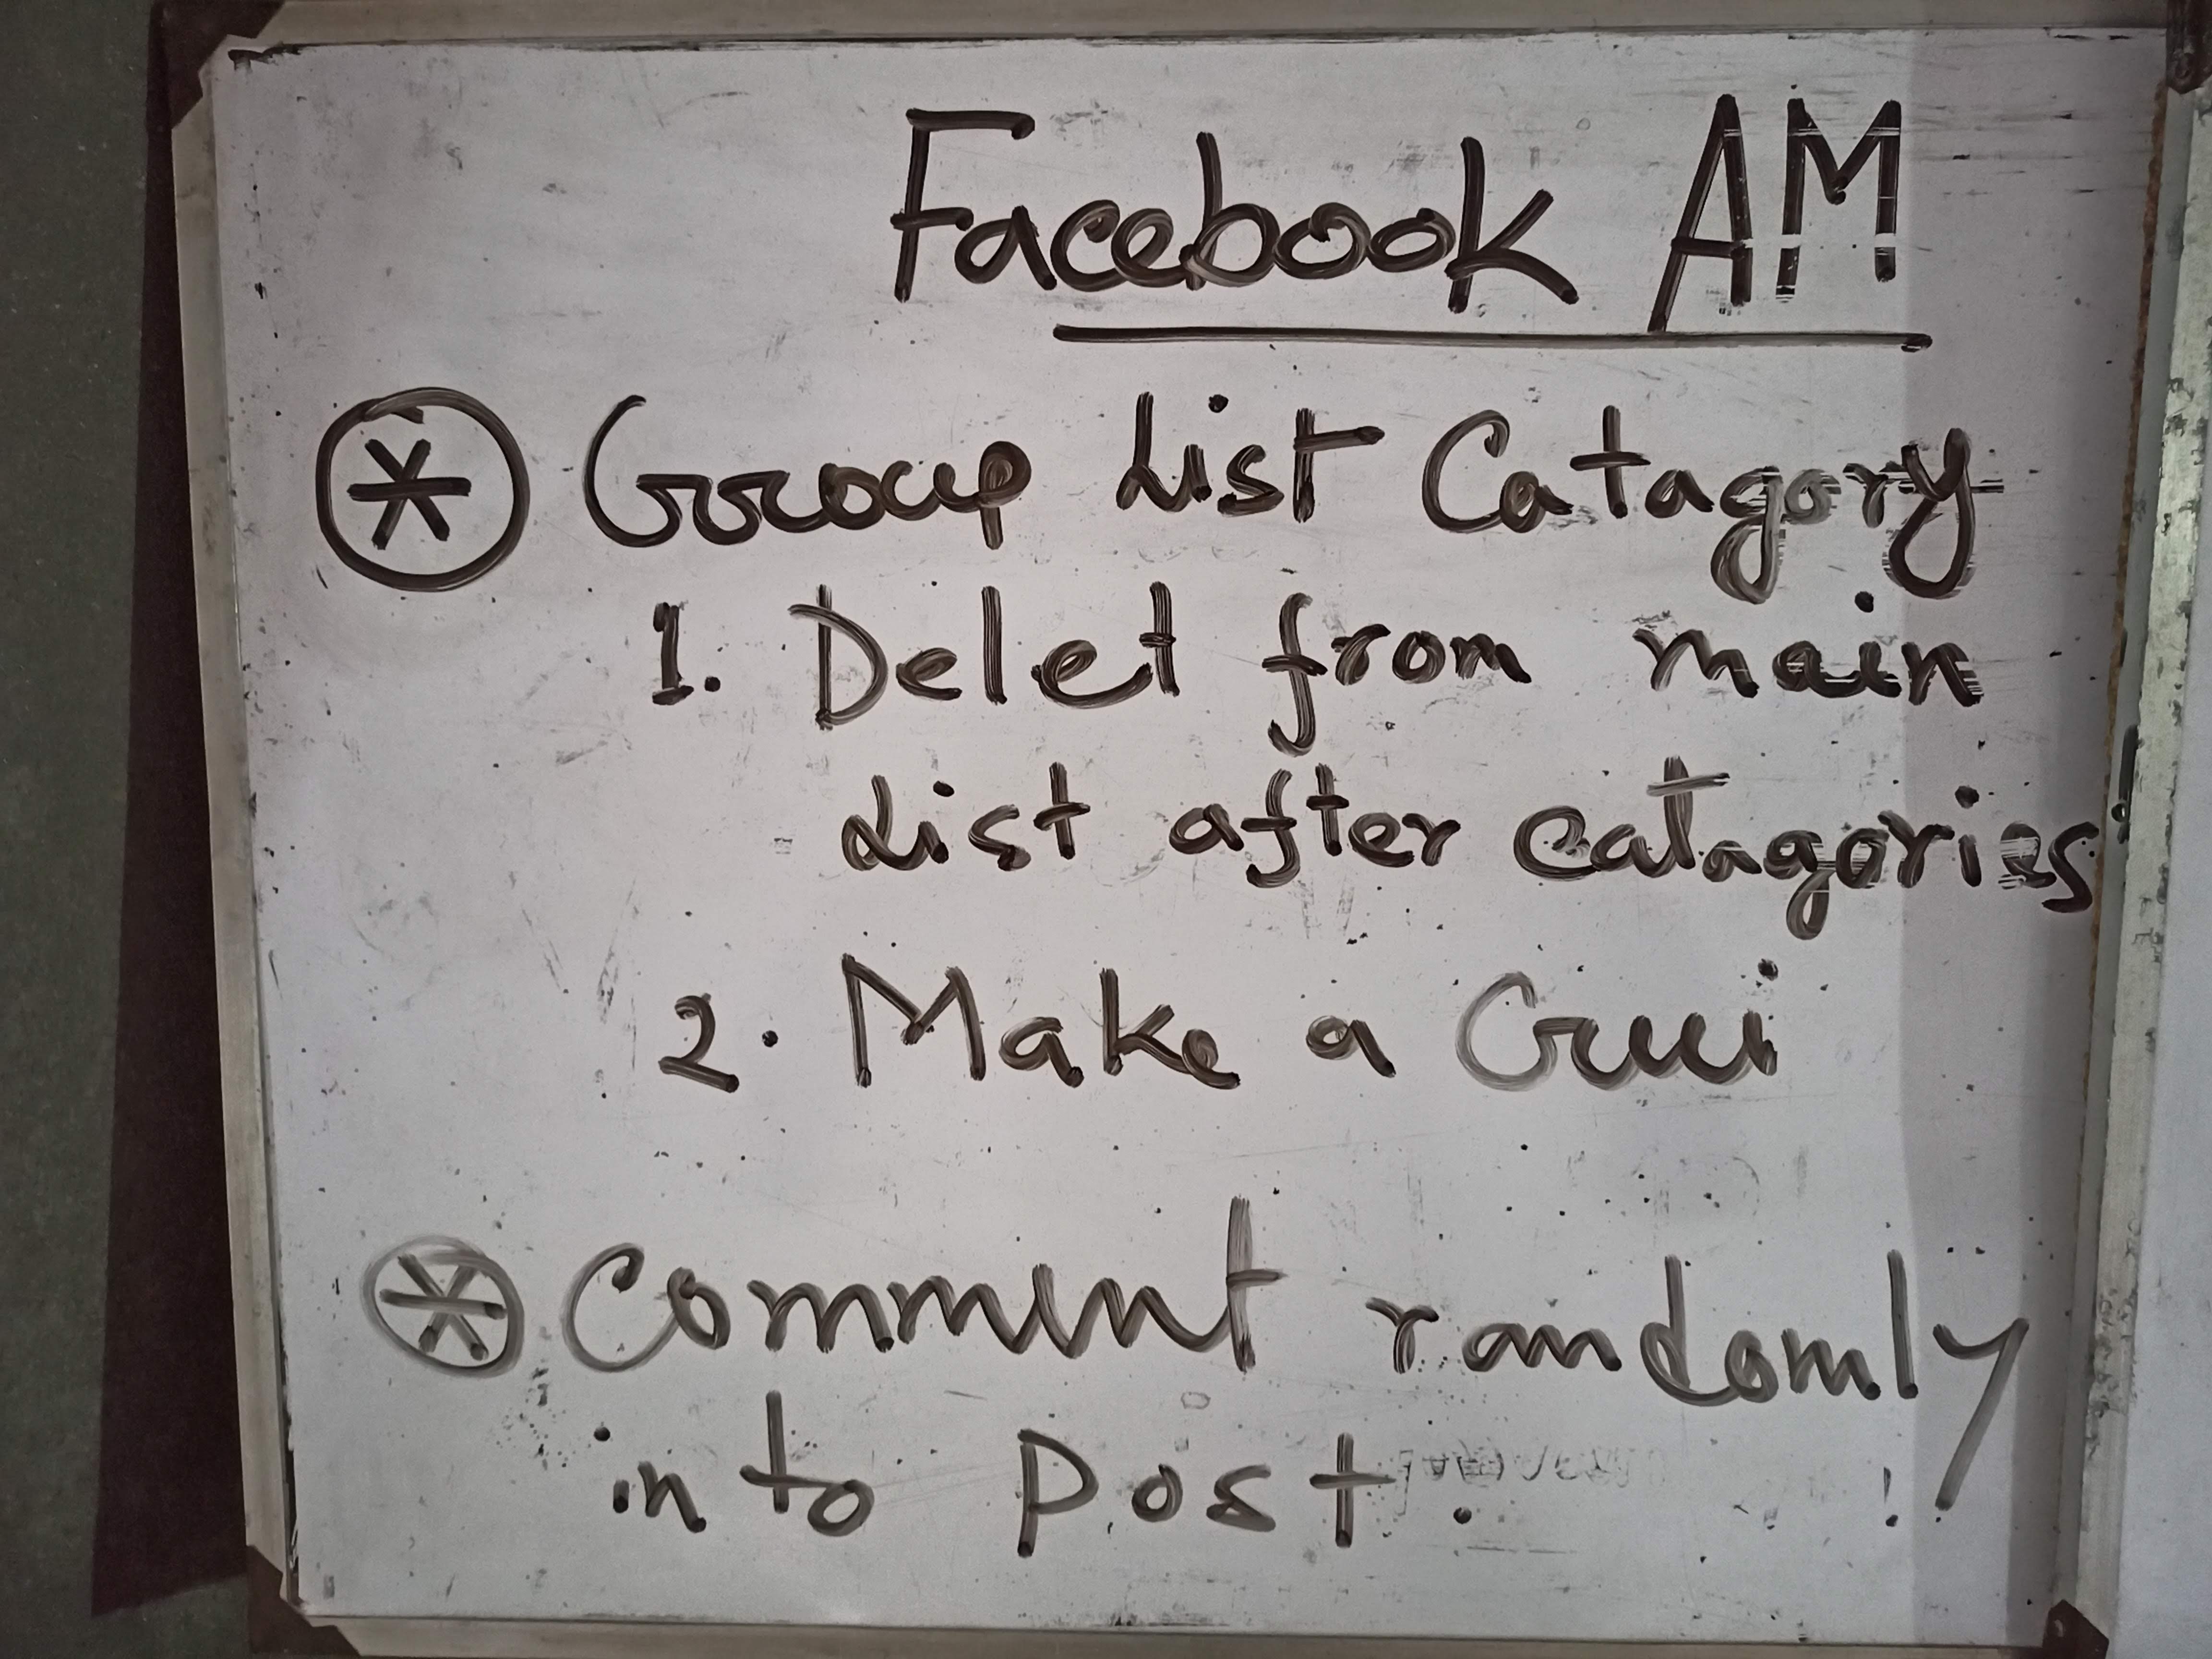 Facebook AM
* Group List Catagory
1. Delet from main
List after catagories
2. Make a Gui
* Comment randomly
into Post.